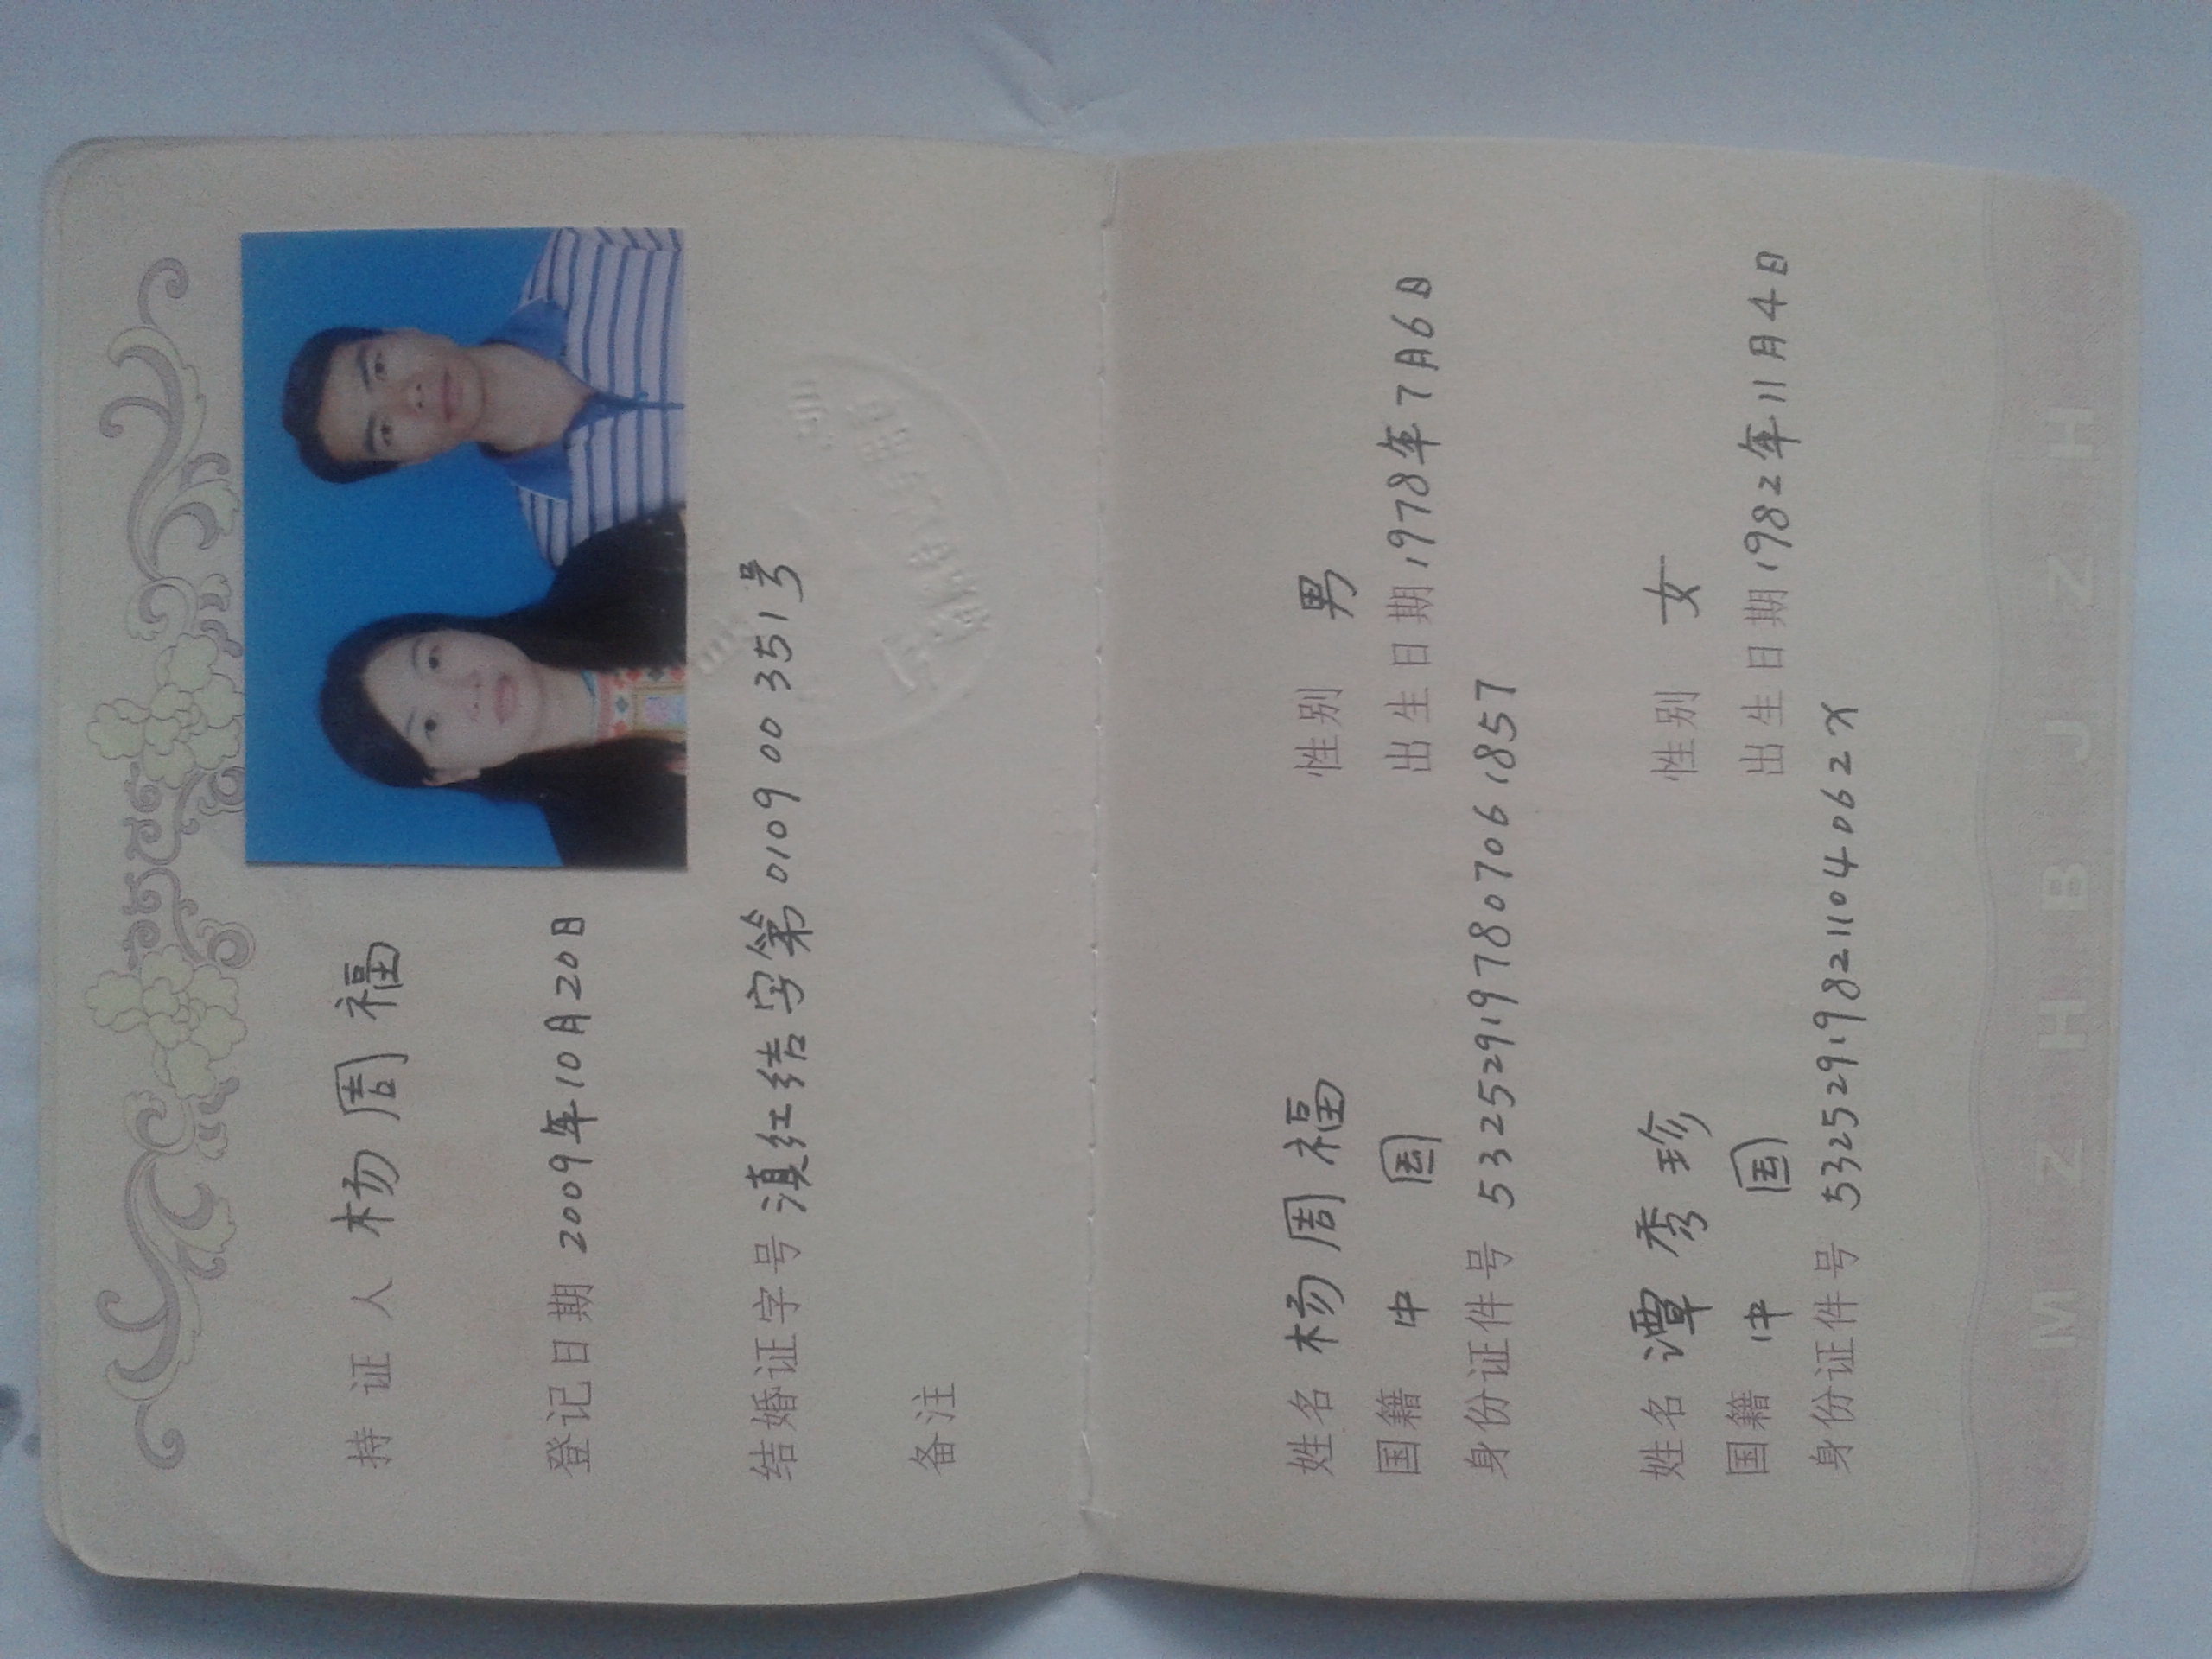 持证人 杨周福
登记日期 2009年10月20日
结婚证字号 滇红结字第010900351号
备注
姓名 杨周福 性别 男
国籍 中国 出生日期 1978年7月6日
身份证件号 532529197807061857
姓名 谭秀珍 性别 女
国籍 中国 出生日期 1982年11月4日
身份证件号 53252919821104062X
MZHBJZH